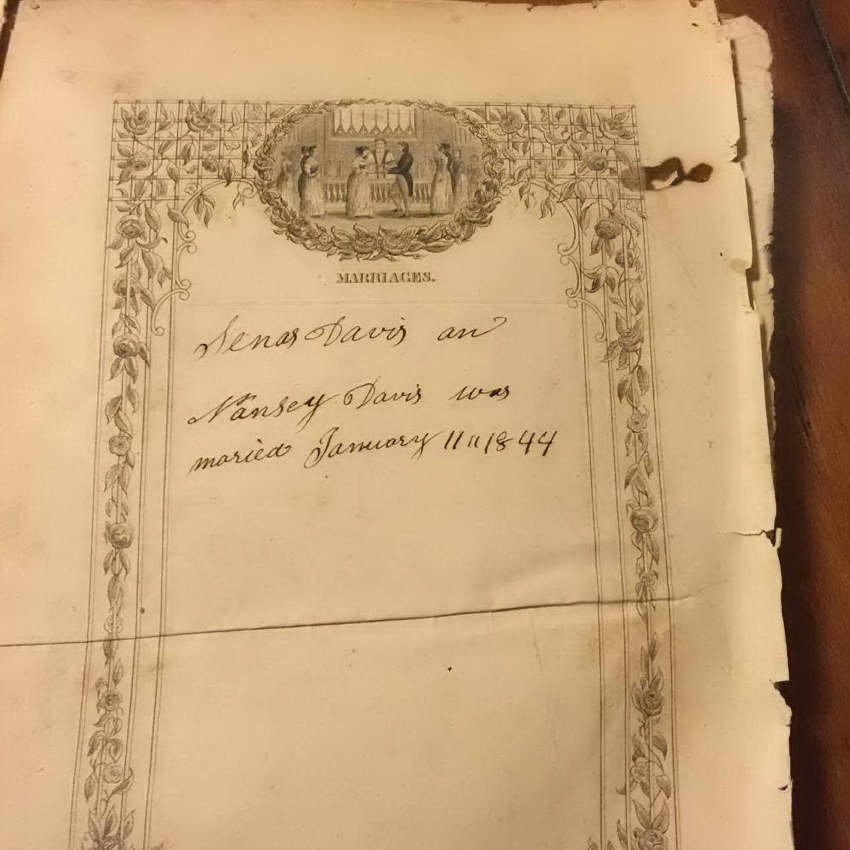 MARRIAGES.
Senas Davis an
Nansey Davis was
maried January 11 " 1844